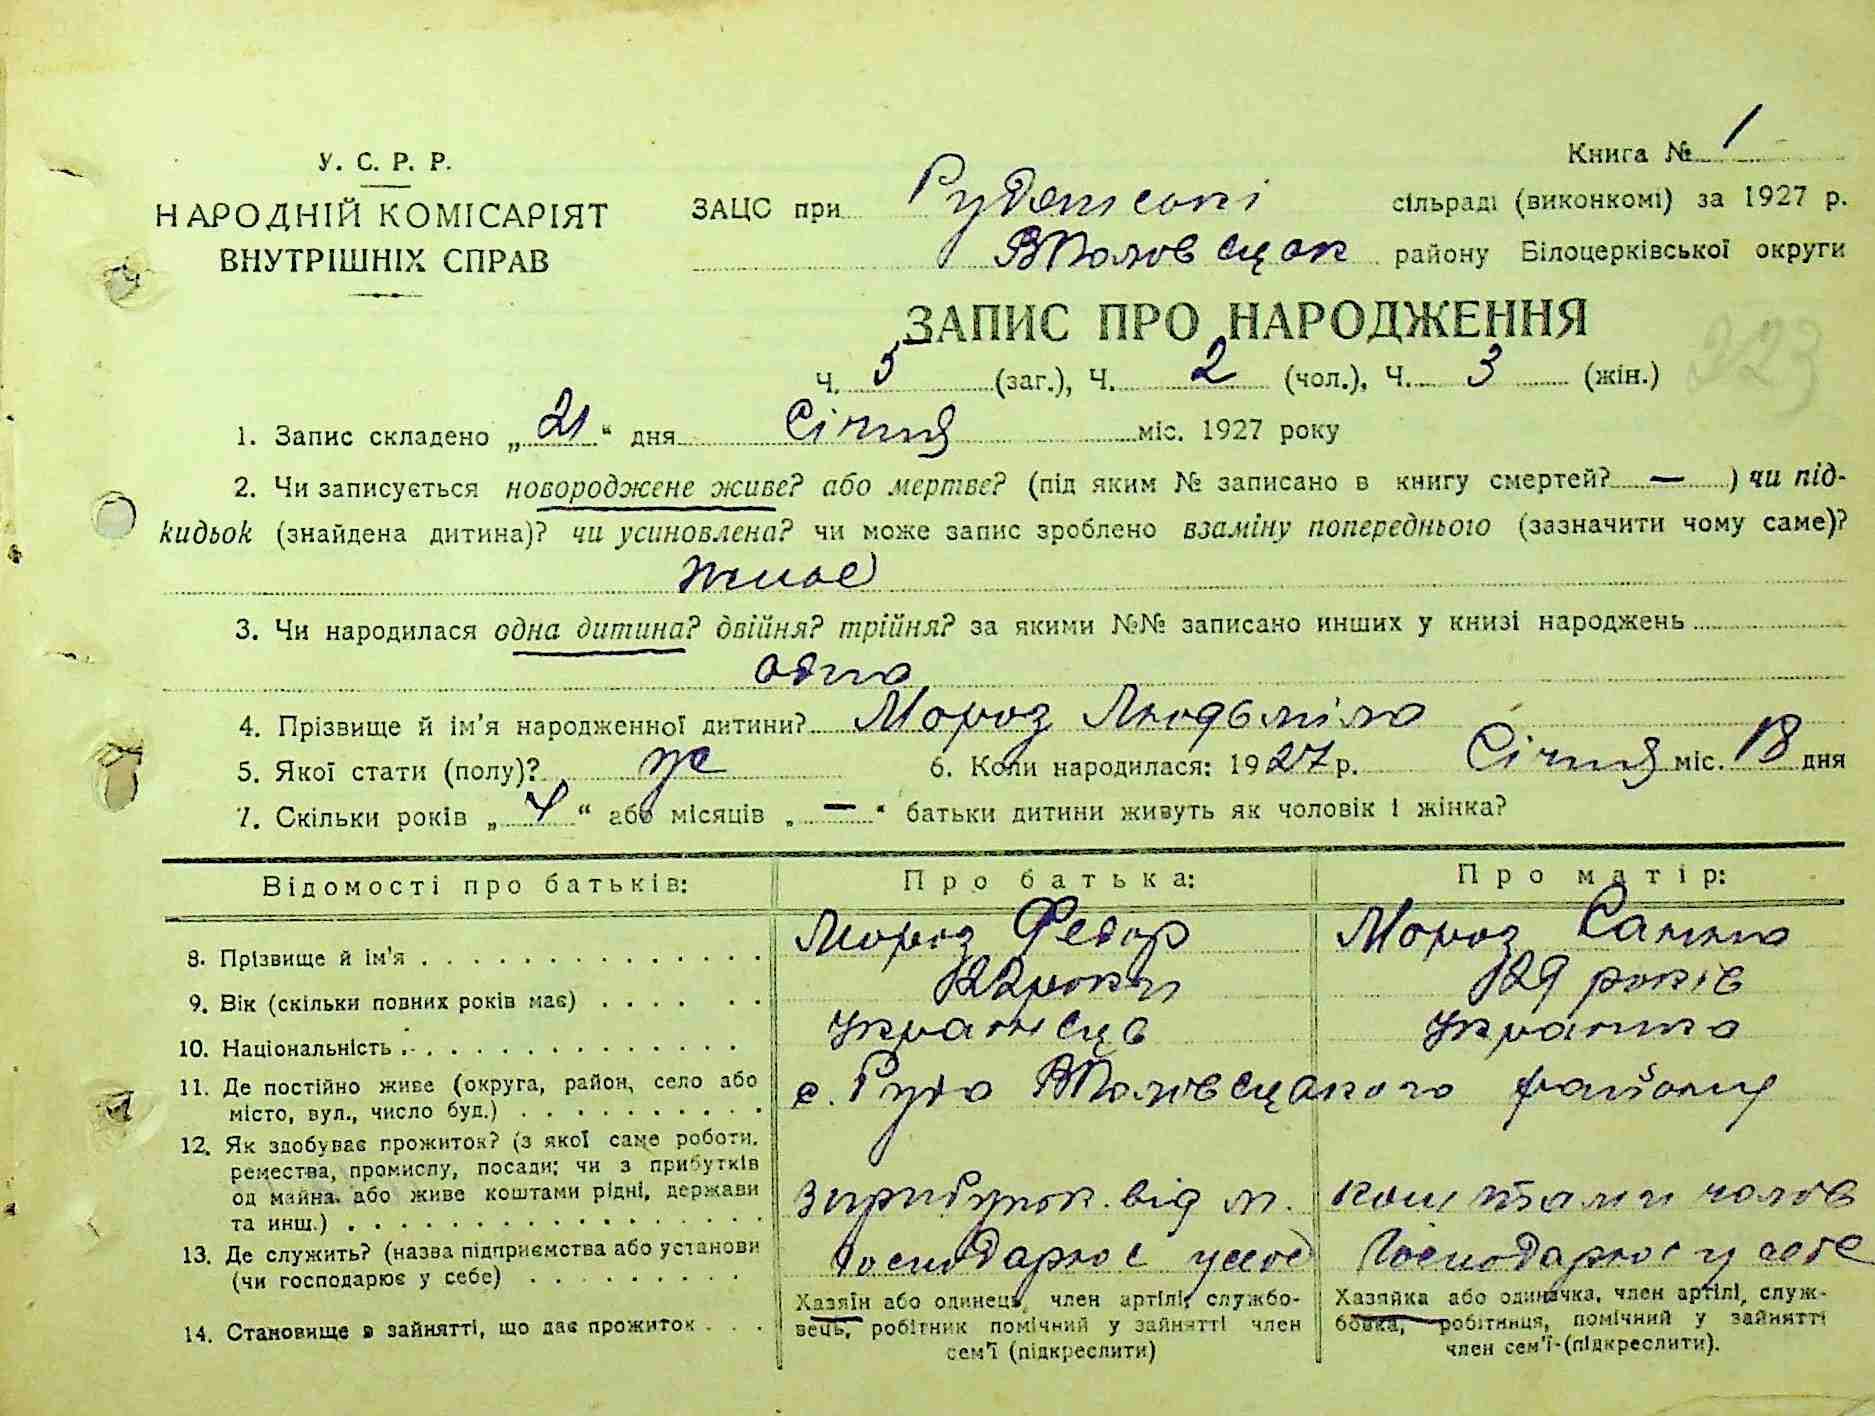 У. С. Р. Р.
НАРОДНІЙ КОМІСАРІЯТ
ВНУТРІШНІХ СПРАВ
Книга № 1
ЗАЦС при Рудянській сільраді (виконкомі) за 1927 р.
ВПоловецьк району Білоцерківської округи
ЗАПИС ПРО НАРОДЖЕННЯ
Ч. 5 (заг.), Ч. 2 (чол.), Ч. 3 (жін.)
223
1. Запис складено „21“ дня Січня міс. 1927 року
2. Чи записується новороджене живе? або мертве? (під яким № записано в книгу смертей? — ) чи під-
кидьок (знайдена дитина)? чи усиновлена? чи може запис зроблено взаміну попереднього (зазначити чому саме)?
живе
3. Чи народилася одна дитина? двійня? трійня? за якими №№ записано инших у книзі народжень
одна
4. Прізвище й ім'я народженної дитини? Мороз Людьміла
5. Якої стати (полу)? ж 6. Коли народилася: 1927 р. Січня міс. 18 дня
7. Скільки років „4“ або місяців „—“ батьки дитини живуть як чоловік і жінка?
Відомості про батьків: Про батька: Про матір:
8. Прізвище й ім'я Мороз Федор Мороз Ганна
9. Вік (скільки повних років має) 22 роки 29 років
10. Національність українець українка
11. Де постійно живе (округа, район, село або
місто, вул., число буд.) с. Руда ВПоловецького району
12. Як здобуває прожиток? (з якої саме роботи,
ремества, промислу, посади; чи з прибутків
од майна, або живе коштами рідні, держави
та инш.) з прибутк. від м. коштами чолов
13. Де служить? (назва підприємства або установи
(чи господарює у себе) Господарює у себе Господарює у себе
14. Становище в зайнятті, що дає прожиток
Хазяїн або одинець, член артілі, службо-
вець, робітник помічний у зайнятті член
сем'ї (підкреслити)
Хазяйка або одиначка, член артілі, служ-
бовка, робітниця, помічний у зайнятті
член сем'ї-(підкреслити).